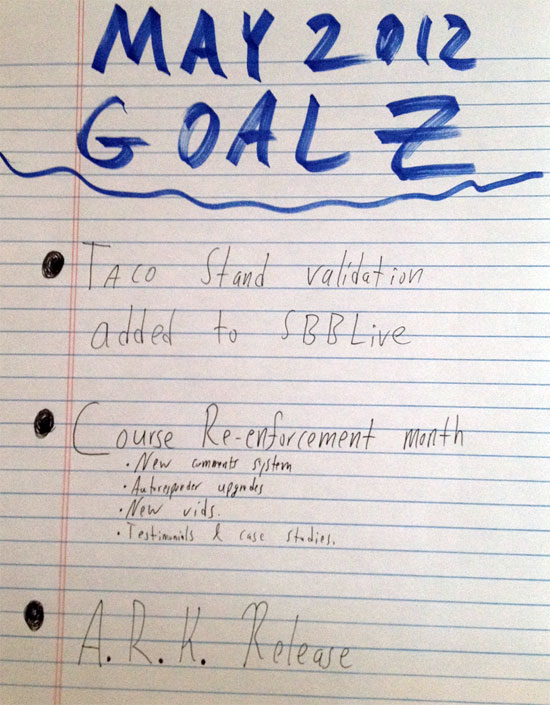 MAY 2012
GOALZ
TACO Stand validation
added to SBBLive
Course Re-enforcement month
• New comments system
• Autoresponder upgrades
• New vids.
• Testimonials & case studies.
A.R.K. Release